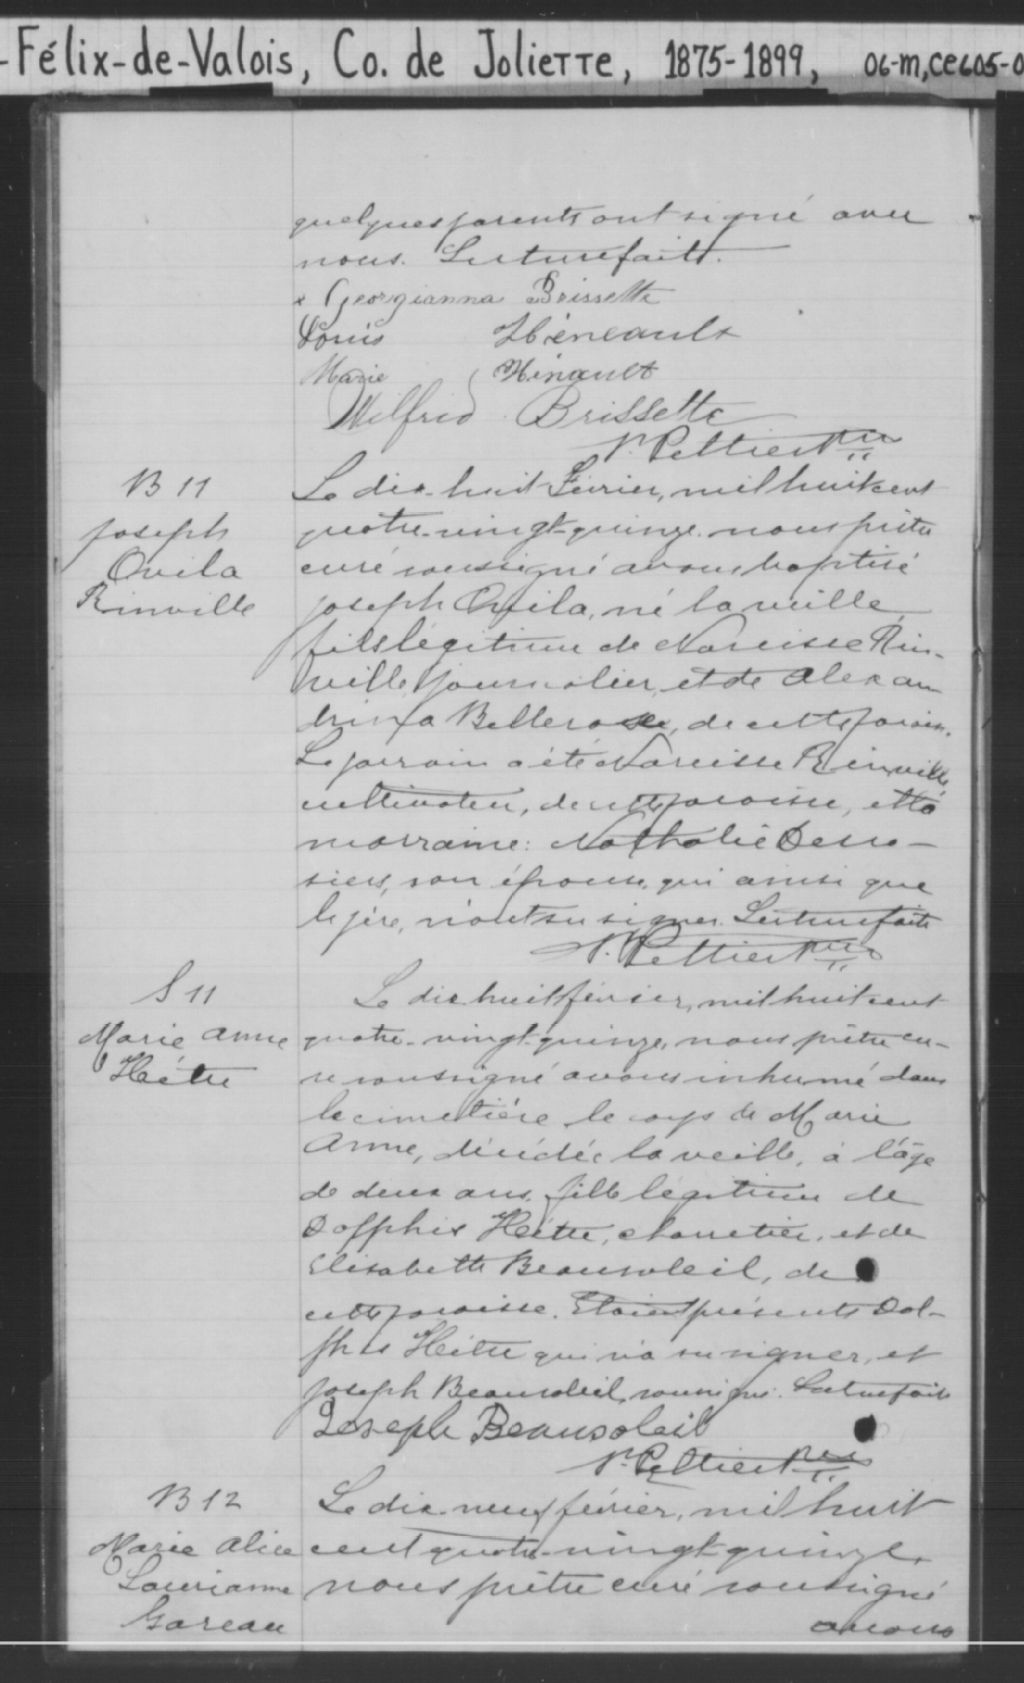 -Félix-de-Valois, Co. de Joliette, 1875-1899, 06-m,CE605-0
quelques parents ont signé avec
nous. Lecture faite.
x Georgianna Brissette
Louis Héneault
Marie Hénault
Wilfrid Brissette
Ptre
B 11
Joseph
Ovila
Rinville
Le dix-huit Février, mil huit cent
quatre-vingt-quinze, nous prêtre
curé soussigné avons baptisé
Joseph Ovila, né la veille
fils légitime de Narcisse Rin-
ville journalier, et de Alexan
drina Bellerose, de cette parois.
Le parrain a été Narcisse Rinville
cultivateur, de cette paroisse, et la
marraine: Nathalie Desro-
siers, son épouse, qui ainsi que
le père, n'ont su signer. Lecture faite
Ptre
S 11
Marie Anne
Hêtu
Le dix huit février, mil huit cent
quatre-vingt-quinze, nous prêtre cu-
ré soussigné avons inhumé dans
le cimetière le corps de Marie
Anne, décédée la veille, à l'âge
de deux ans, fille légitime de
Dolphis Hêtu, charretier, et de
Elisabeth Beausoleil, de
cette paroisse. Etaient présents Dol-
phis Hêtu qui n'a su signer, et
Joseph Beausoleil soussigné. Lecture faite
Joseph Beausoleil
Ptre
B 12
Marie Alice
Laurianne
Gareau
Le dix-neuf février, mil huit
cent quatre-vingt-quinze,
nous prêtre curé soussigné
avons